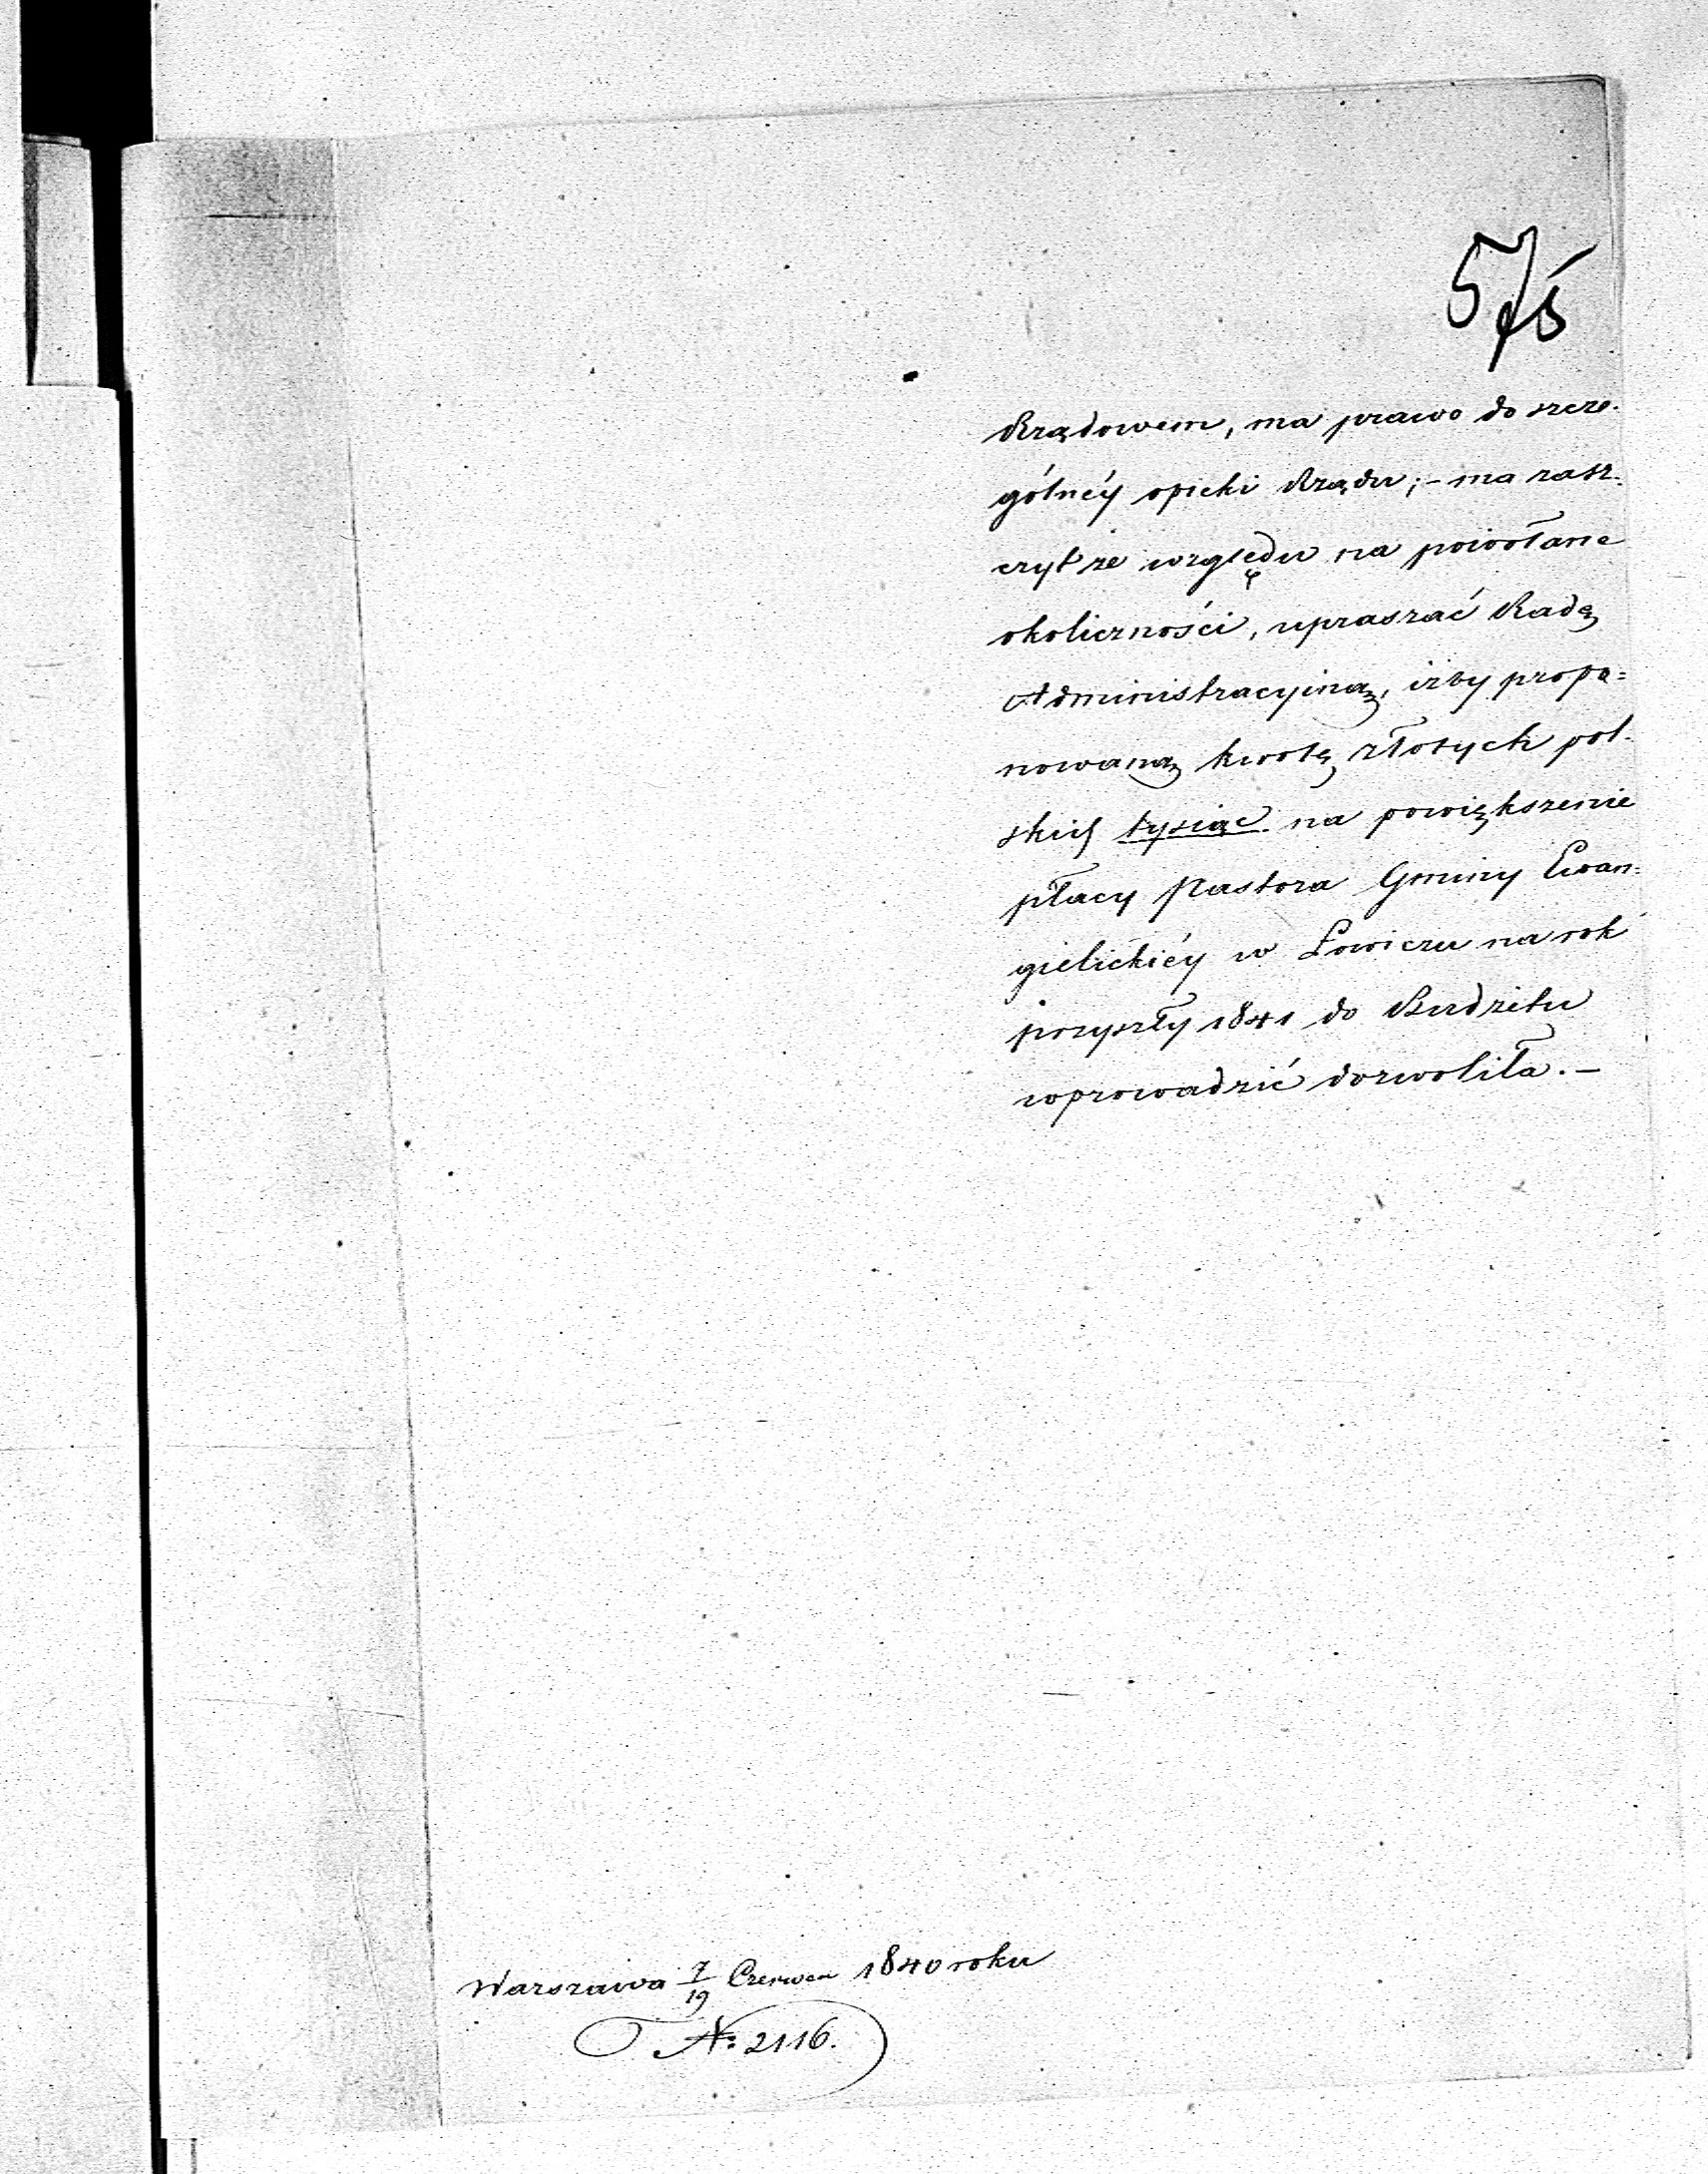 Rządowem, ma prawo do szcze-
gólnéy opieki Rządu; – ma zasz-
czyt ze względu na powołane
okoliczności, upraszać Radę
Administracyiną, iżby propo=
nowaną kwotę złotych pol-
skich tysiąc na powiększenie
płacy Pastora Gminy Ewan-
gielickiéy w Łowiczu na rok
przyszły 1841 do Budżetu
wprowadzić dozwoliła. –
Warszawa 7/19 Czerwca 1840 roku
N: 2116.